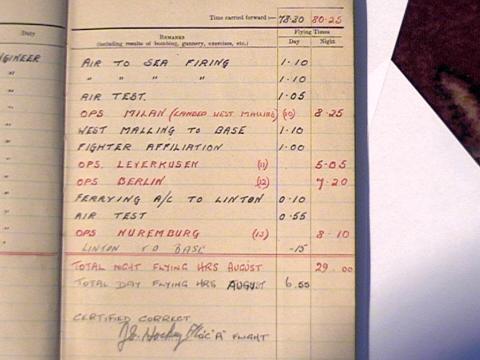 Time carried forward :— 78·30 80·25
Duty
REMARKS
(including results of bombing, gunnery, exercises, etc.)
Flying Times
Day Night
ENGINEER
AIR TO SEA FIRING 1·10
" " " " 1·10
AIR TEST. 1·05
OPS MILAN (LANDED WEST MALLING) (10) 8·25
WEST MALLING TO BASE 1·10
FIGHTER AFFILIATION 1·00
OPS. LEVERKUSEN (11) 5·05
OPS BERLIN (12) 7·20
FERRYING A/C TO LINTON 0·10
AIR TEST 0·55
OPS NUREMBURG (13) 8·10
LINTON TO BASE ·15
TOTAL NIGHT FLYING HRS AUGUST 29·00
TOTAL DAY FLYING HRS AUGUST 6·55
CERTIFIED CORRECT
OC "A" FLIGHT